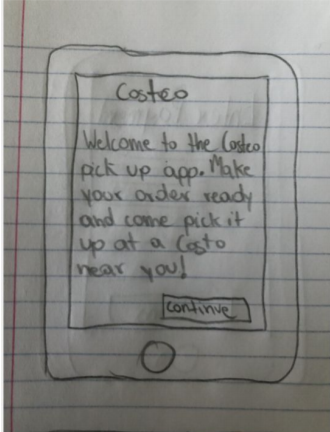 Costco
Welcome to the Costco
pick up app. Make
your order ready
and come pick it
up at a Costo
near you!
continue